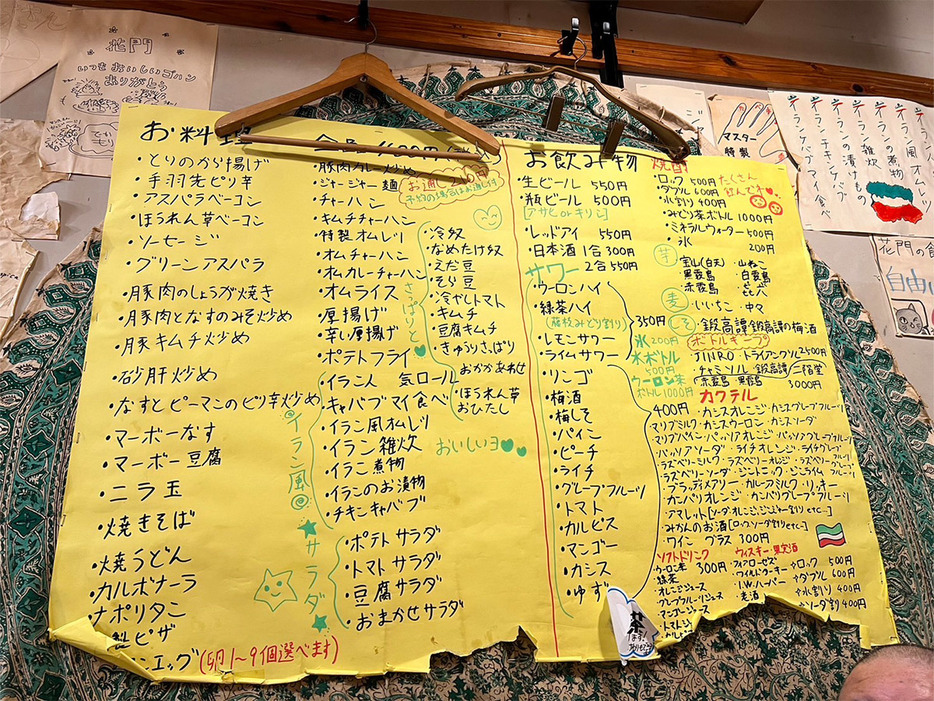 花門
いつもおいしいゴハン
ありがとう
お料理
・とりのから揚げ
・手羽先ピリ辛
・アスパラベーコン
・ほうれん草ベーコン
・ソーセージ
・グリーンアスパラ
・豚肉のしょうが焼き
・豚肉となすのみそ炒め
・豚キムチ炒め
・砂肝炒め
・なすとピーマンのピリ辛炒め
・マーボーなす
・マーボー豆腐
・ニラ玉
・焼きそば
・焼うどん
・カルボナーラ
・ナポリタン
製ピザ
エッグ(卵1〜9個選べます)
・豚肉カレー炒め
・ジャージャー麺
・チャーハン
・キムチチャーハン
・特製オムレツ
・オムチャーハン
・オムカレーチャーハン
・オムライス
・厚揚げ
・辛し厚揚げ
・ポテトフライ
・イラン人 気ロール
・キャバブマイ食べ
・イラン風オムレツ
・イラン雑炊
・イラン煮物
・イランのお漬物
・チキンキャバブ
イラン風
★サラダ★
・ポテトサラダ
・トマトサラダ
・豆腐サラダ
・おまかせサラダ
さっぱりと
・冷奴
・なめたけ奴
・えだ豆
・そら豆
・冷やしトマト
・キムチ
・豆腐キムチ
・きゅうりさっぱり
おかかあわせ
・ほうれん草
おひたし
おいしいヨ
お飲み物
・生ビール 550円
・瓶ビール 500円
[アサヒorキリン]
・レッドアイ 550円
・日本酒 1合300円
2合550円
サワー
・ウーロンハイ
・緑茶ハイ
・レモンサワー
・ライムサワー
350円
・リンゴ
・梅酒
・梅しそ
・パイン
・ピーチ
・ライチ
・グレープフルーツ
・トマト
・カルピス
・マンゴー
・カシス
・ゆず
焼酎
・ロック 500円
・ダブル 600円
たくさん
飲んでネ
・水割り 400円
・みどり茶ボトル 1000円
・ミネラルウォーター 500円
・氷 200円
芋
・宝山(白天)・山ねこ
・黒霧島 ・白霧島
・赤霧島
麦
・いいちこ ・中々
しそ
・鍛高譚・鍛高譚の梅酒
氷200円
水ボトル
500円
ウーロン茶
ボトル1000円
ボトルキープ
・JINRO・トライアングル2500円
・チャミソル・鍛高譚/二階堂
・赤霧島・黒霧島 3000円
カクテル
400円・カシスオレンジ・カシスグレープフルーツ
マリブミルク・カシスウーロン・カシスソーダ
マリブパイン・パッソアオレンジ・パッソアグレープフルーツ
パッソアソーダ・ライチオレンジ・ライチグレープ
ラズベリーミルク・ラズベリーオレンジ・ラズベリーフルーツ
ラズベリーソーダ・ジントニック・ジンライム
・ブラッディメアリー・カルーアミルク・リッキー
・カンパリオレンジ・カンパリグレープフルーツ
・アマレット[ソーダ・オレンジ・ジンジャー割りetc…]
・みかんのお酒[ロック・ソーダ割りetc…]
・ワイン グラス 300円
ソフトドリンク
・ウーロン茶 300円
・緑茶
・オレンジジュース
・グレープフルーツジュース
・マンゴージュース
・トマトジ
ウィスキー・果実酒
・フォアローゼズ
・ワイルドターキー
・I.W.ハーパー
・ロック 500円
・ダブル 600円
・水割り 400円
・ソーダ割り 400円
マスター
特製
花門の食
自由